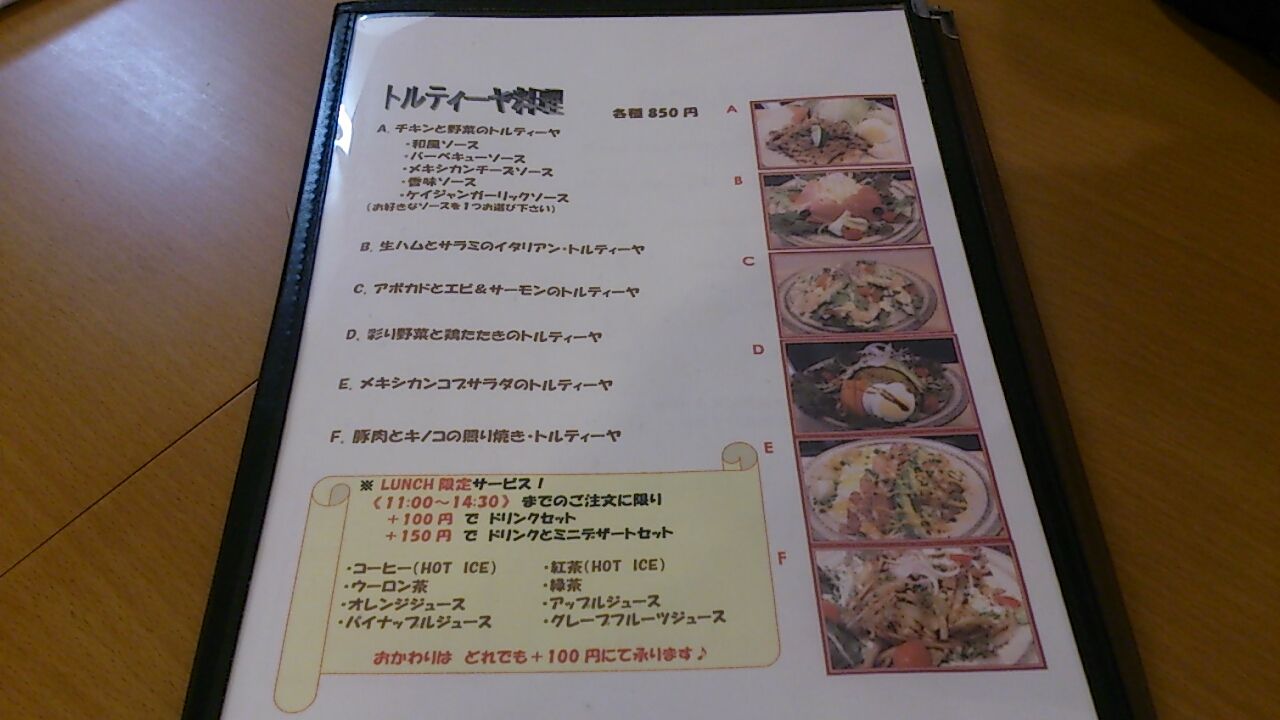 トルティーヤ料理
各種 850 円
A. チキンと野菜のトルティーヤ
・和風ソース
・バーベキューソース
・メキシカンチーズソース
・香味ソース
・ケイジャンガーリックソース
(お好きなソースを1つお選び下さい)
B. 生ハムとサラミのイタリアン・トルティーヤ
C. アボカドとエビ&サーモンのトルティーヤ
D. 彩り野菜と鶏たたきのトルティーヤ
E. メキシカンコブサラダのトルティーヤ
F. 豚肉とキノコの照り焼き・トルティーヤ
A
B
C
D
E
F
※ LUNCH 限定サービス!
《11:00~14:30》 までのご注文に限り
+100 円 で ドリンクセット
+150 円 で ドリンクとミニデザートセット
・コーヒー(HOT ICE) ・紅茶(HOT ICE)
・ウーロン茶 ・緑茶
・オレンジジュース ・アップルジュース
・パイナップルジュース ・グレープフルーツジュース
おかわりは どれでも+100 円にて承ります♪